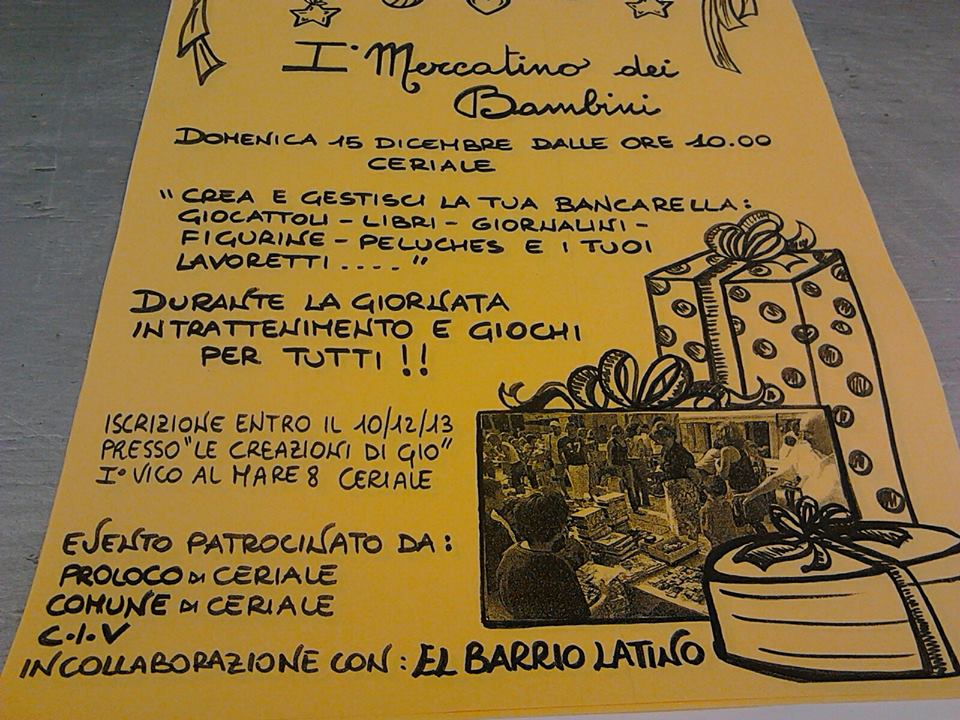 I° Mercatino dei
Bambini
DOMENICA 15 DICEMBRE DALLE ORE 10.00
CERIALE
"CREA E GESTISCI LA TUA BANCARELLA:
GIOCATTOLI - LIBRI - GIORNALINI -
FIGURINE - PELUCHES E I TUOI
LAVORETTI ...."
DURANTE LA GIORNATA
INTRATTENIMENTO E GIOCHI
PER TUTTI !!
ISCRIZIONE ENTRO IL 10/12/13
PRESSO "LE CREAZIONI DI GIO"
I° VICO AL MARE 8 CERIALE
EVENTO PATROCINATO DA:
PROLOCO DI CERIALE
COMUNE DI CERIALE
C.I.V
IN COLLABORAZIONE CON: EL BARRIO LATINO